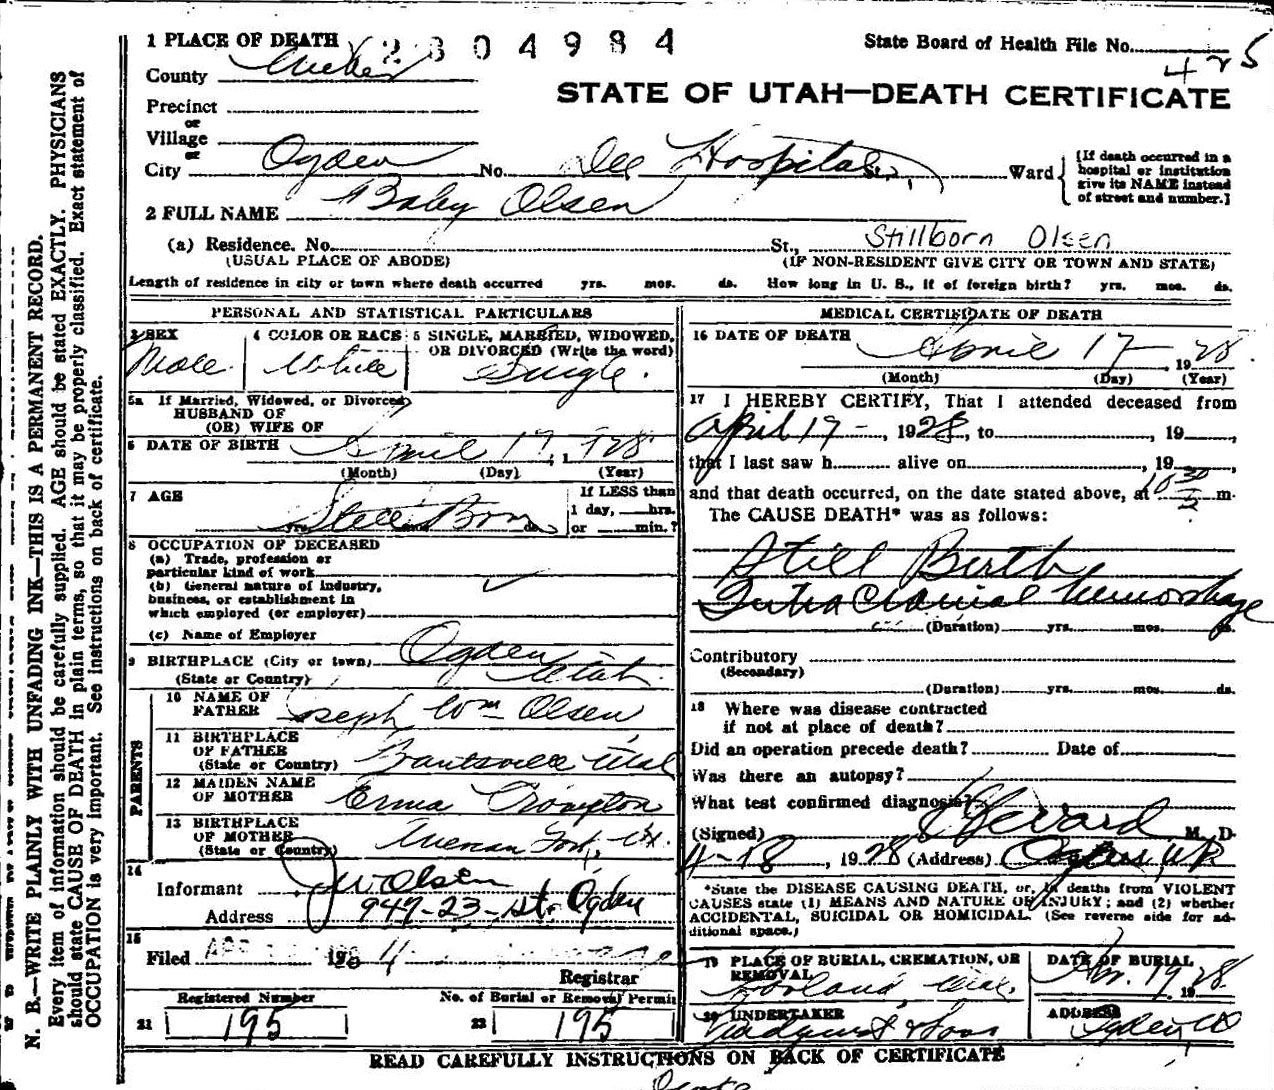 1 PLACE OF DEATH 2804984 State Board of Health File No.
425
County Weber
STATE OF UTAH—DEATH CERTIFICATE
Precinct
or
Village
or
City Ogden No. Dee Hospital St., Ward
(If death occurred in a hospital or institution give its NAME instead of street and number.)
2 FULL NAME Baby Olsen
(a) Residence. No. St., Stillborn Olsen
(USUAL PLACE OF ABODE) (IF NON-RESIDENT GIVE CITY OR TOWN AND STATE)
Length of residence in city or town where death occurred yrs. mos. ds. How long in U. S., if of foreign birth? yrs. mos. ds.
PERSONAL AND STATISTICAL PARTICULARS
3 SEX Male
4 COLOR OR RACE White
5 SINGLE, MARRIED, WIDOWED, OR DIVORCED (Write the word) Single.
5a If Married, Widowed, or Divorced
HUSBAND OF
(OR) WIFE OF
6 DATE OF BIRTH April 17, 1928
(Month) (Day) (Year)
7 AGE Still Born
yrs. mos. ds.
If LESS than
1 day, hrs.
or min.?
8 OCCUPATION OF DECEASED
(a) Trade, profession or
particular kind of work
(b) General nature of industry,
business, or establishment in
which employed (or employer)
(c) Name of Employer
9 BIRTHPLACE (City or town) Ogden
(State or Country) Utah.
PARENTS
10 NAME OF
FATHER Joseph Wm Olsen
11 BIRTHPLACE
OF FATHER
(State or Country) Grantsville Utah
12 MAIDEN NAME
OF MOTHER Erma Crompton
13 BIRTHPLACE
OF MOTHER
(State or Country) American Fork, Ut.
14
Informant J W Olsen
Address 947-23-St. Ogden
15
Filed APR 1928
Registrar
Registered Number
21 195
No. of Burial or Removal Permit
22 195
MEDICAL CERTIFICATE OF DEATH
16 DATE OF DEATH April 17 1928.
(Month) (Day) (Year)
17 I HEREBY CERTIFY, That I attended deceased from
April 17-, 1928, to , 19 ,
that I last saw h alive on , 19 ,
and that death occurred, on the date stated above, at 10 30 m.
The CAUSE DEATH* was as follows:
Still Birth
Intra Cranial hemorrhage
(Duration) yrs. mos. ds.
Contributory
(Secondary)
(Duration) yrs. mos. ds.
18 Where was disease contracted
if not at place of death?
Did an operation precede death? Date of
Was there an autopsy?
What test confirmed diagnosis?
(Signed) M. D.
4-18, 1928 (Address) Ogden, Ut
*State the DISEASE CAUSING DEATH, or, in deaths from VIOLENT
CAUSES state (1) MEANS AND NATURE OF INJURY; and (2) whether
ACCIDENTAL, SUICIDAL OR HOMICIDAL. (See reverse side for ad-
ditional space.)
19 PLACE OF BURIAL, CREMATION, OR
REMOVAL
Utah.
DATE OF BURIAL
Apr. 19 1928
20 UNDERTAKER
& Sons
ADDRESS
Ogden, Ut
READ CAREFULLY INSTRUCTIONS ON BACK OF CERTIFICATE
N. B.—WRITE PLAINLY WITH UNFADING INK—THIS IS A PERMANENT RECORD.
Every item of information should be carefully supplied. AGE should be stated EXACTLY. PHYSICIANS
should state CAUSE OF DEATH in plain terms, so that it may be properly classified. Exact statement of
OCCUPATION is very important. See instructions on back of certificate.